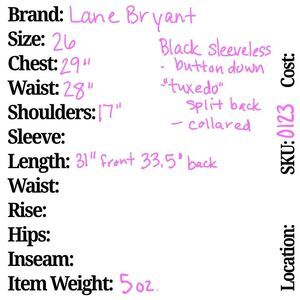 Brand: Lane Bryant
Size: 26
Chest: 29"
Waist: 28"
Shoulders: 17"
Sleeve:
Length: 31" front 33.5" back
Waist:
Rise:
Hips:
Inseam:
Item Weight: 5 oz.
Black sleeveless
- button down
- "tuxedo"
split back
- collared
Cost:
SKU: 0123
Location: